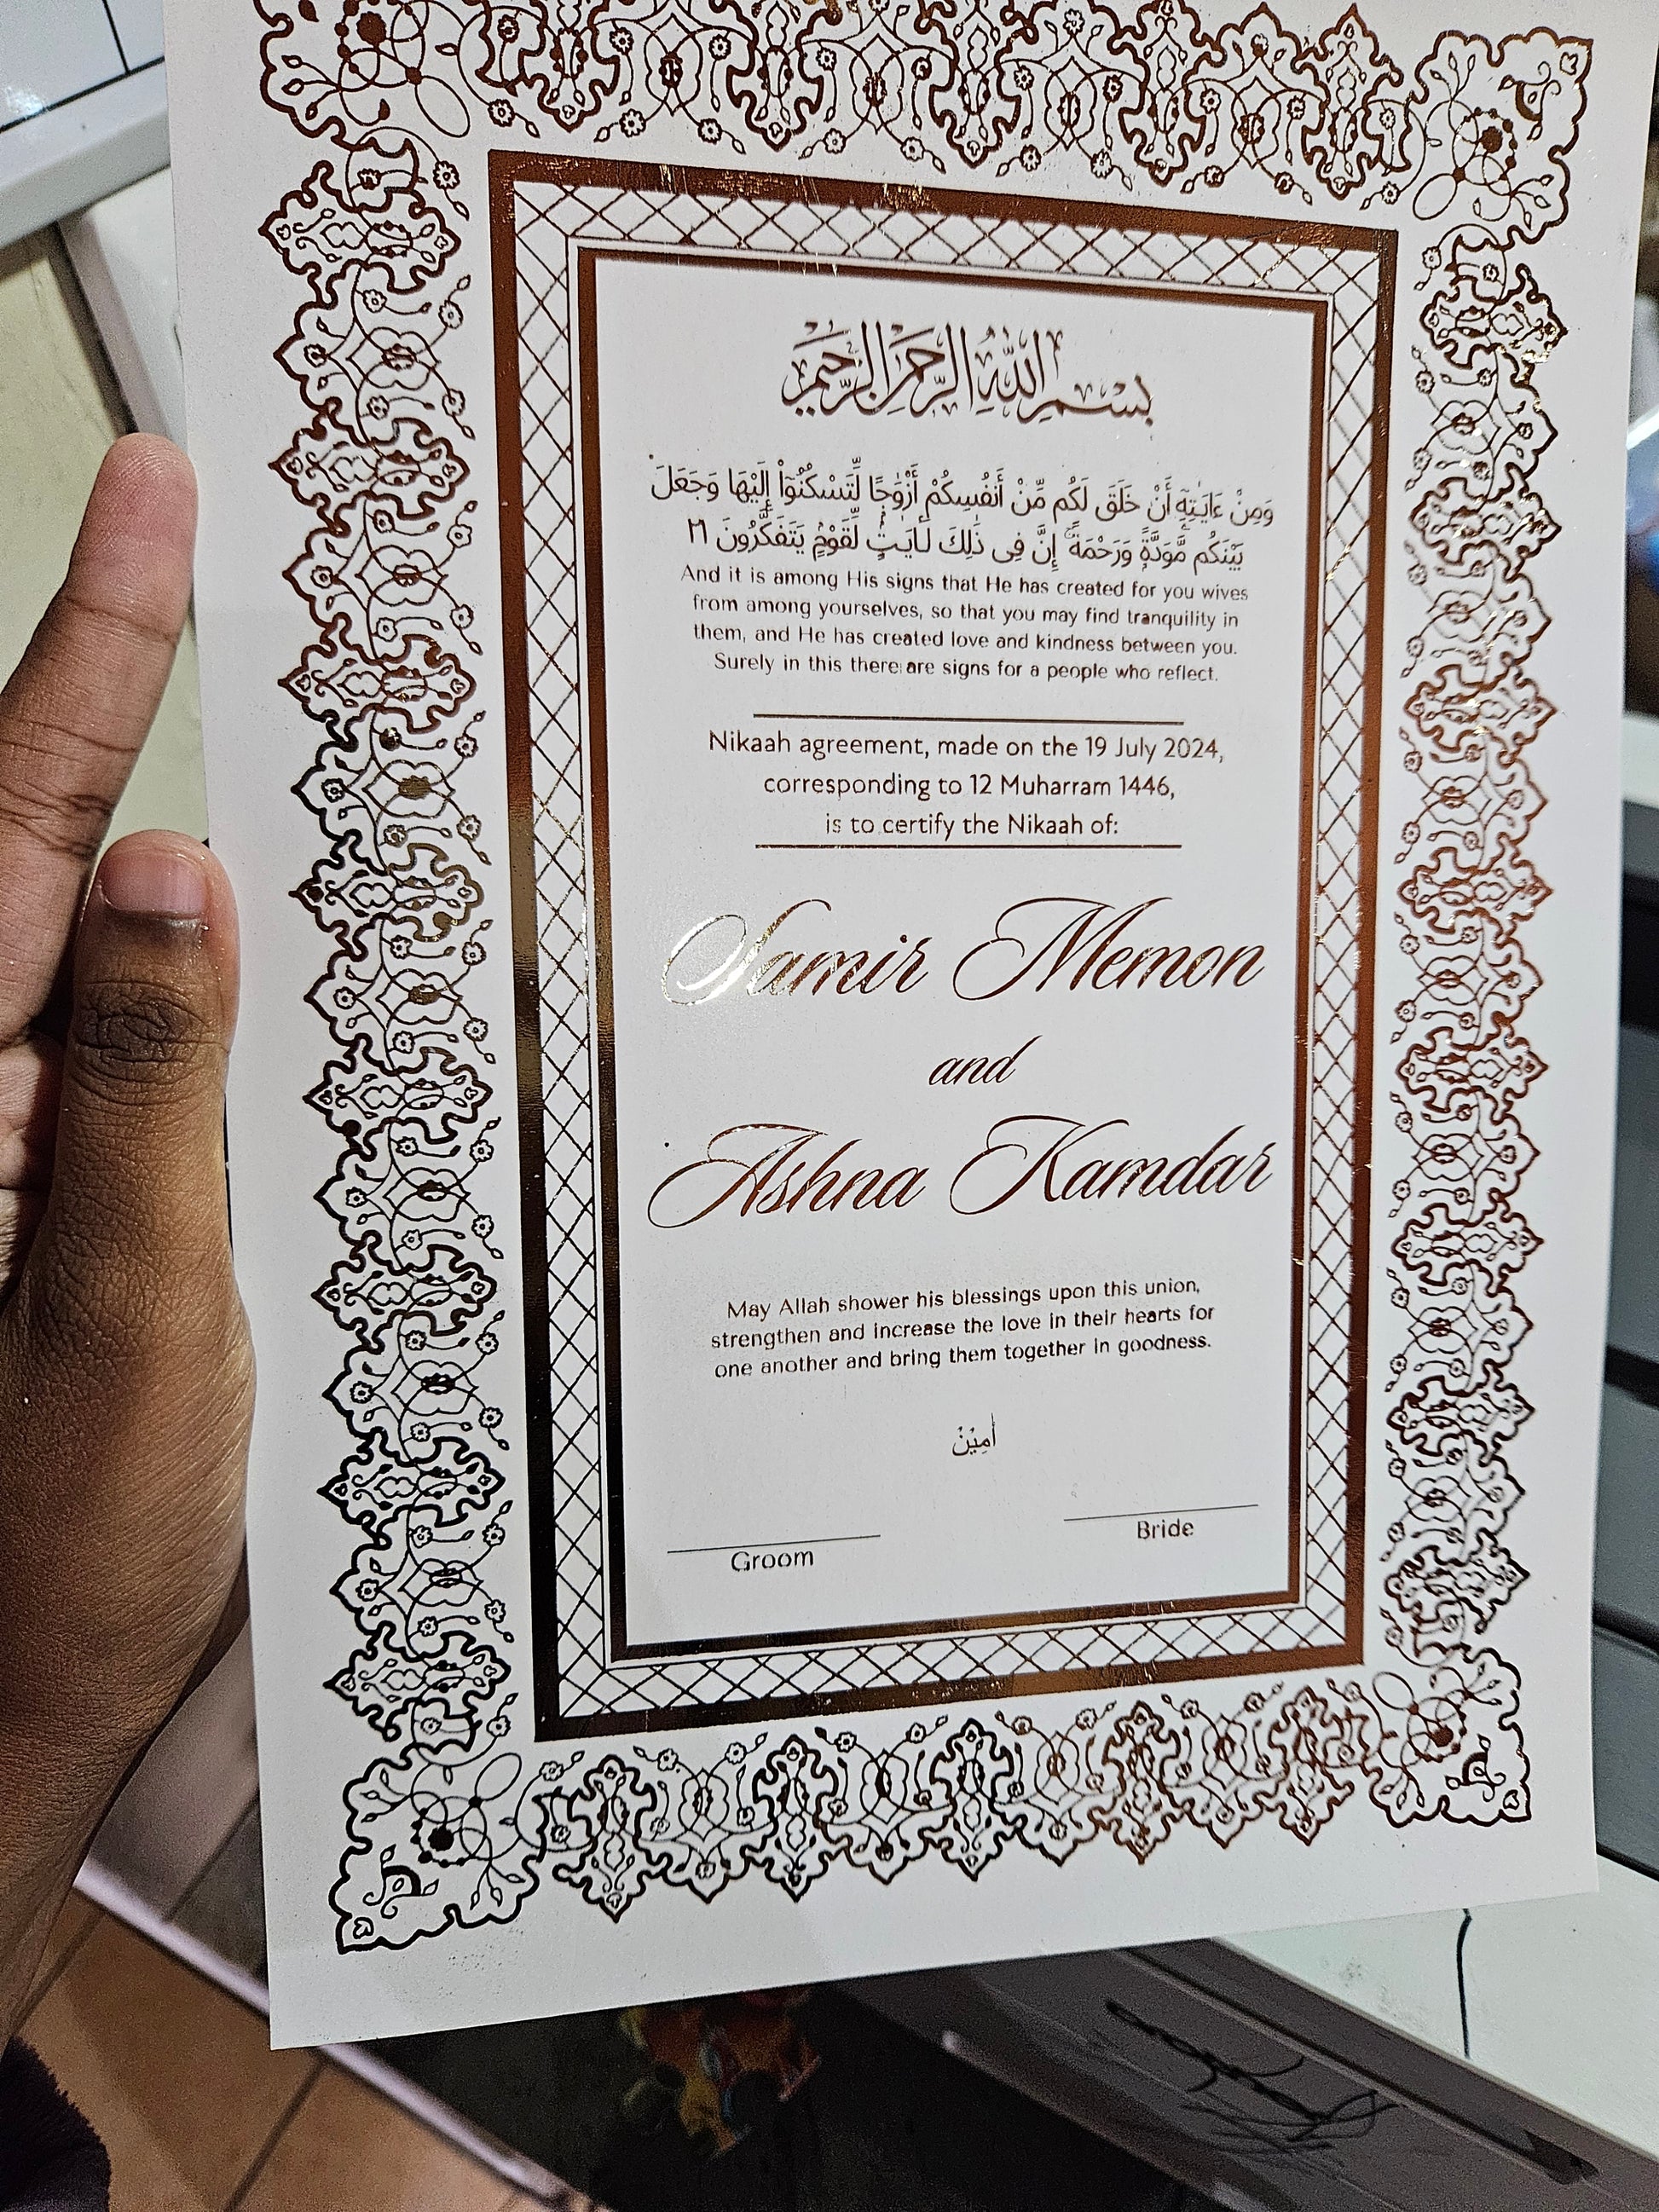 بسم الله الرحمن الرحيم
وَمِنْ ءَايَـٰتِهِۦٓ أَنْ خَلَقَ لَكُم مِّنْ أَنفُسِكُمْ أَزْوَٰجًا لِّتَسْكُنُوٓا۟ إِلَيْهَا وَجَعَلَ
بَيْنَكُم مَّوَدَّةً وَرَحْمَةً ۚ إِنَّ فِى ذَٰلِكَ لَـَٔايَـٰتٍ لِّقَوْمٍ يَتَفَكَّرُونَ ٢١
And it is among His signs that He has created for you wives
from among yourselves, so that you may find tranquility in
them, and He has created love and kindness between you.
Surely in this there are signs for a people who reflect.
Nikaah agreement, made on the 19 July 2024,
corresponding to 12 Muharram 1446,
is to certify the Nikaah of:
Samir Memon
and
Ashna Kamdar
May Allah shower his blessings upon this union,
strengthen and increase the love in their hearts for
one another and bring them together in goodness.
أٰمِيْنْ
Bride
Groom